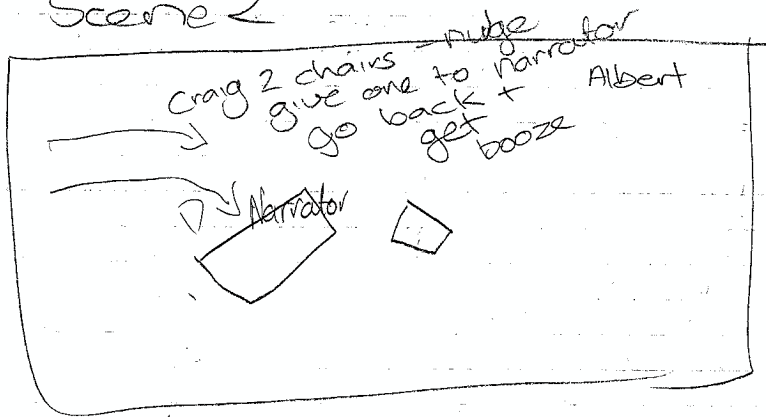 Scene 2
Craig 2 chairs - nudge
give one to narrator
go back +
get
booze
Albert
Narrator